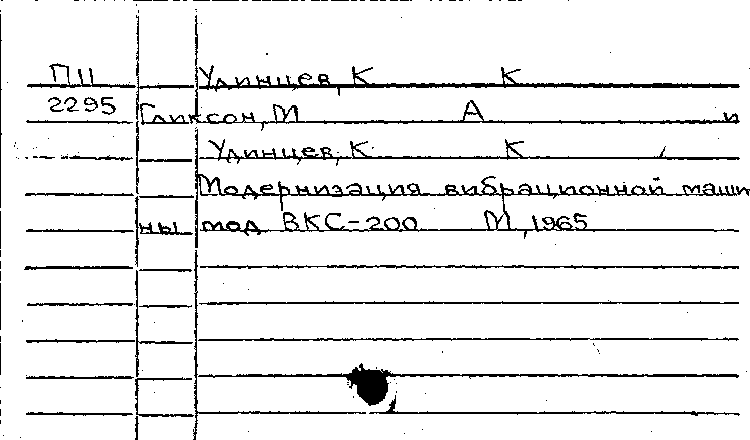 П11 Удинцев, К К
2295 Гликсон, М А и
Удинцев, К К
Модернизация вибрационной маши
ны мод ВКС-200 М, 1965